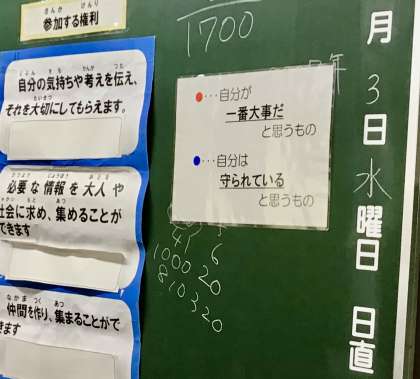 参加する権利
自分の気持ちや考えを伝え、
それを大切にしてもらえます。
必要な情報を大人や
社会に求め、集めることが
できます
仲間を作り、集まることがで
きます
1700
●・・・自分が
一番大事だ
と思うもの
●・・・自分は
守られている
と思うもの
6
1000
20
10
20
年
月3日水曜日 日直